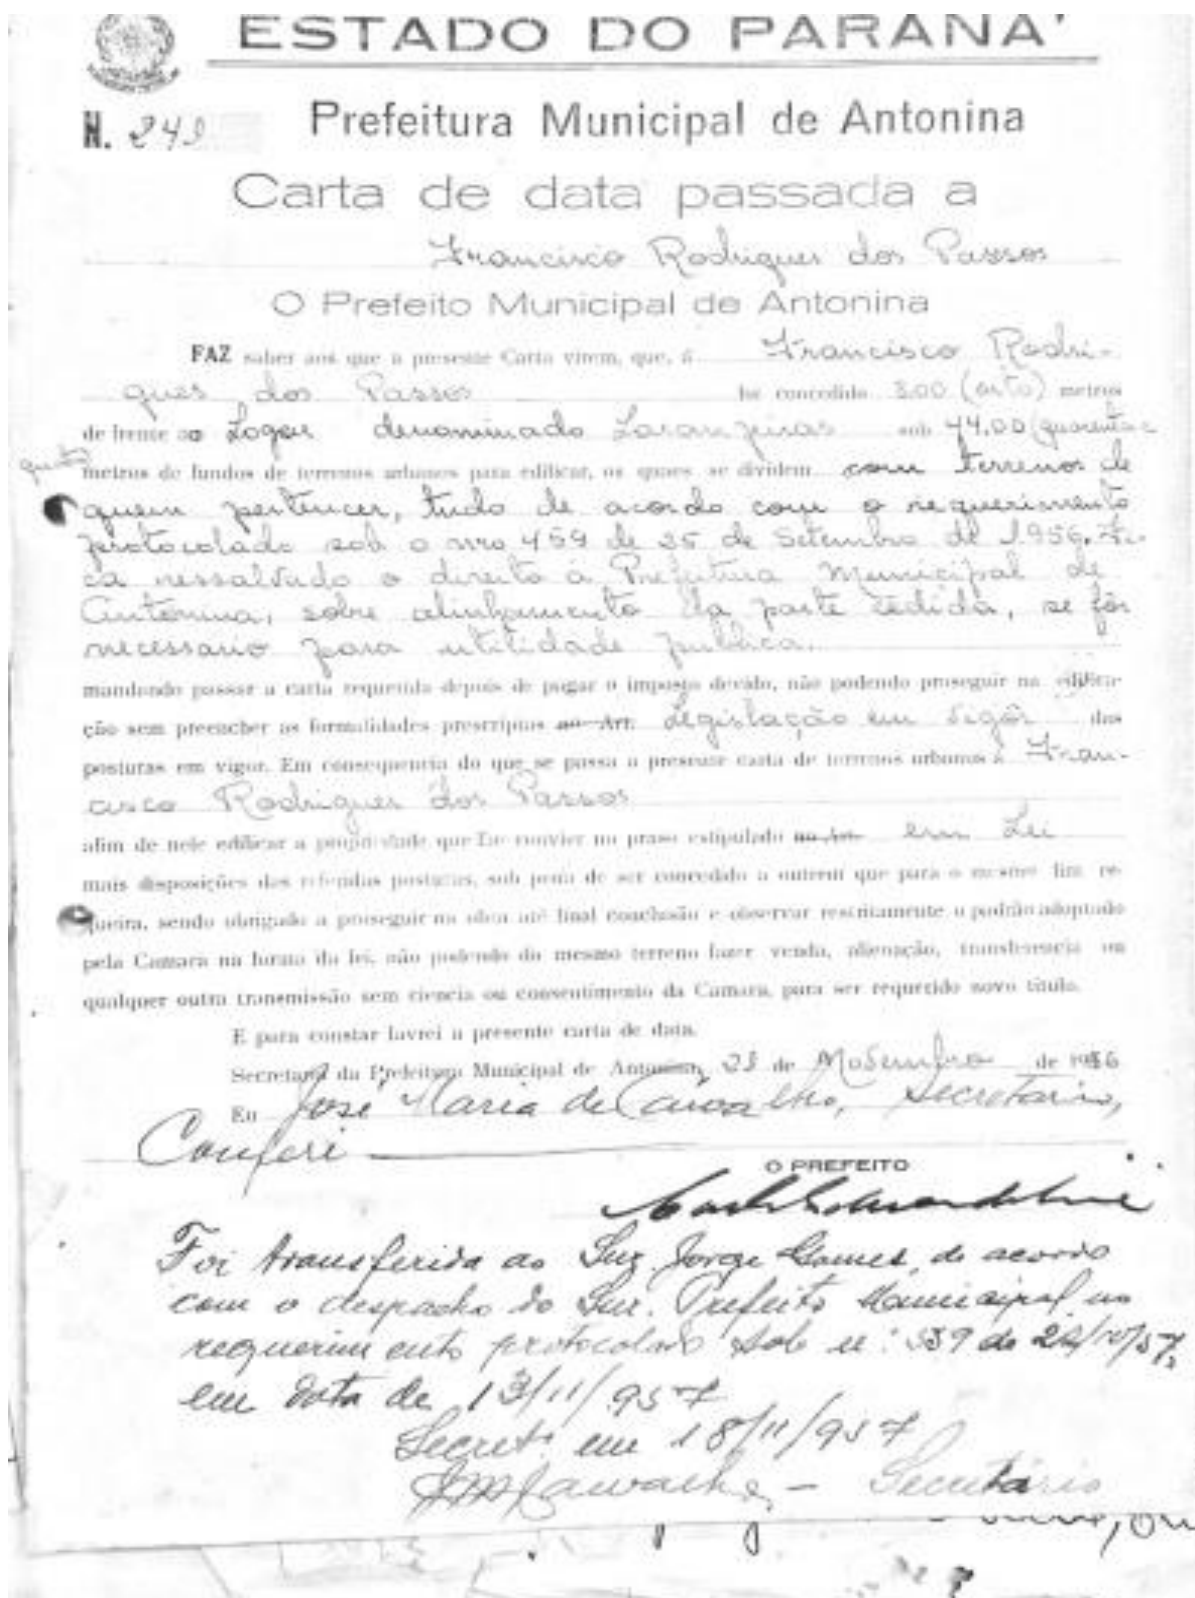 ESTADO DO PARANA'
N. 249
Prefeitura Municipal de Antonina
Carta de data passada a
Francisco Rodrigues dos Passos
O Prefeito Municipal de Antonina
FAZ saber aos que a presente Carta virem, que, á Francisco Rodri-
gues dos Passos foi concedido 8.00 (oito) metros
de frente ao Logar denominado Laranjeiras sob 44.00 (quarenta e
quatro
metros de fundos de terrenos urbanos para edificar, os quaes se dividem com terrenos de
quem pertencer, tudo de acordo com o requerimento
protocolado sob o nro 459 de 25 de Setembro de 1.956. Fi-
ca ressalvado o direito á Prefeitura Municipal de
Antonina, sobre alinhamento da parte cedida, se fôr
necessario para utilidade publica.
mandando passar a carta requerida depois de pagar o imposto devido, não podendo proseguir na edifica-
ção sem preencher as formalidades prescriptas ao Art. Legislação em vigôr das
posturas em vigor. Em consequencia do que se passa a presente carta de terrenos urbanos á Fran-
cisco Rodrigues dos Passos
afim de nele edificar a propriedade que lhe convier no praso estipulado em Lei
mais disposições das referidas posturas, sob pena de ser concedido a outrem que para o mesmo fim re-
queira, sendo obrigado a proseguir na obra até final conclusão e observar restritamente o padrão adoptado
pela Camara na forma da lei, não podendo do mesmo terreno fazer venda, alienação, transferencia ou
qualquer outra transmissão sem ciencia ou consentimento da Camara, para ser requerido novo titulo.
E para constar lavrei a presente carta de data.
Secretaria da Prefeitura Municipal de Antonina, 23 de Novembro de 1956
Eu José Maria de Carvalho, Secretário,
Conferi
O PREFEITO
Foi transferida ao Snr. Jorge Gomes, de acordo
com o despacho do Snr. Prefeito Municipal no
requerimento protocolado sob n: 559 de 24/10/57,
em data de 13/11/957
Secretª em 18/11/957
JMCarvalho, - Secretário